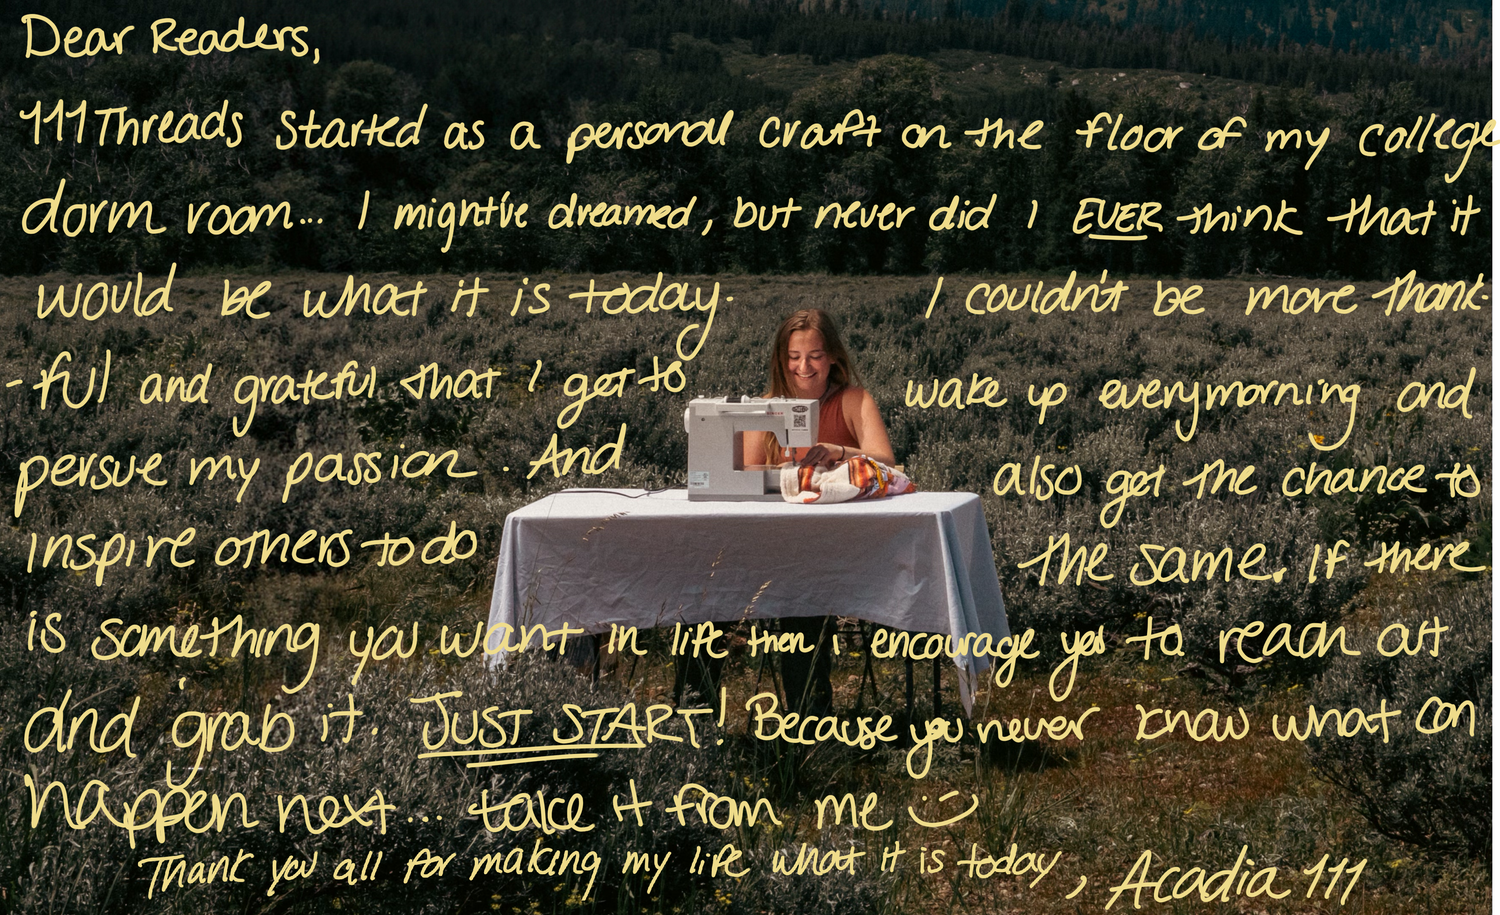 Dear Readers,
111Threads started as a personal craft on the floor of my college
dorm room... I might've dreamed, but never did I EVER think that it
would be what it is today. I couldn't be more thank-
-ful and grateful that I get to wake up everymorning and
persue my passion. And also get the chance to
inspire others to do the same. If there
is something you want in life then i encourage you to reach out
and grab it. JUST START! Because you never know what can
happen next... take it from me :)
Thank you all for making my life what it is today, Acadia 111